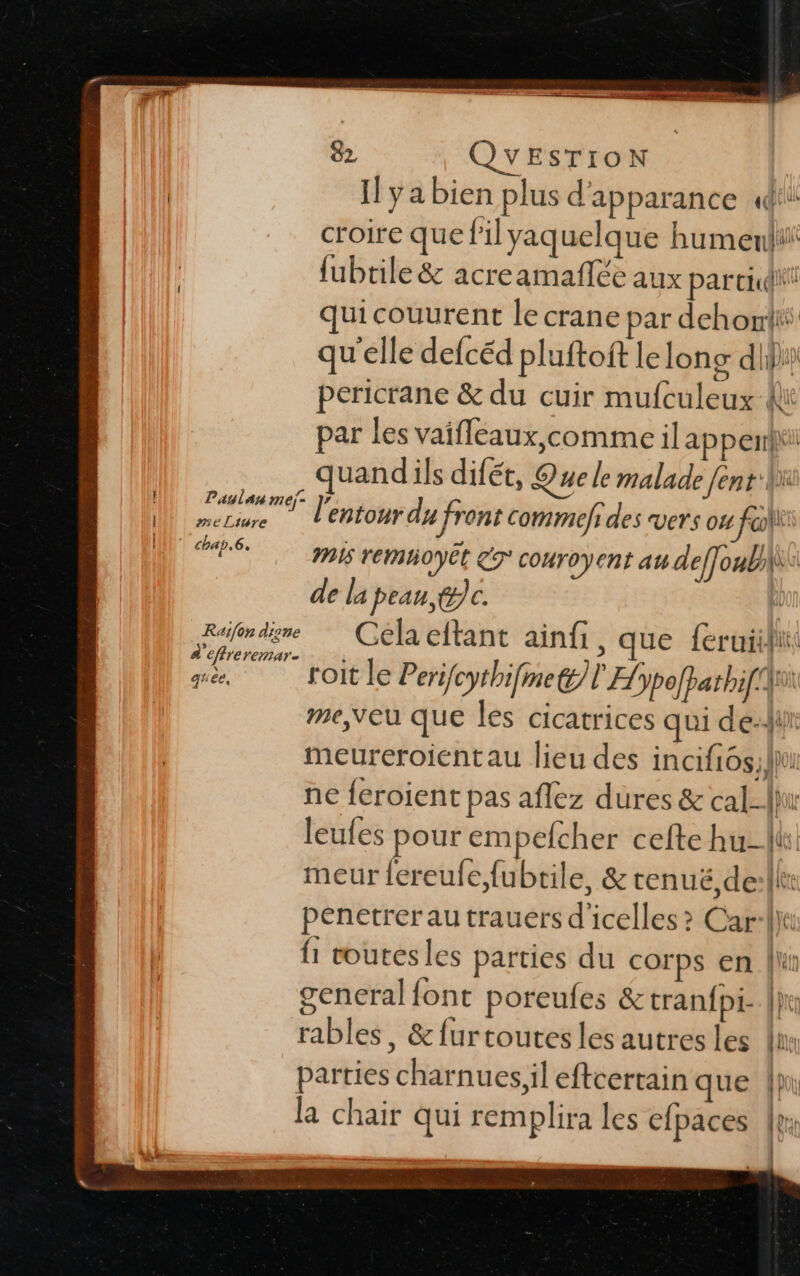 82 QVESTION
Il y a bien plus d'apparance
croire que s'il y a quelque
ſubtile & acre amaſſée aux
qui couurent le crane par
qu'elle deſcéd pluſtoſt le long
pericrane & du cuir muſculeux
par les vaiſſeaux, comme il
quand ils diſét, Que le malade ſent
Paul au meſ-
me Liure
chap. 6.
l'entour du front comme ſi des vers ou
mis remuoyét & couroyent au
de la peau, &c.
Raiſon digne
d'eſtre remar-
quée.
Cela eſtant ainſi, que
roit le Periſcythiſme & l'
me, veu que les cicatrices qui de-
meureroient au lieu des inciſiós,
ne ſeroient pas aſſez dures & cal-
leuſes pour empeſcher ceſte hu-
meur ſereuſe, ſubtile, & tenuë, de
penetrer au trauers d'icelles? Car
ſi toutes les parties du corps en
general ſont poreuſes & tranſpi-
rables, & ſur toutes les autres les
parties charnues, il eſt certain que
la chair qui remplira les eſpaces